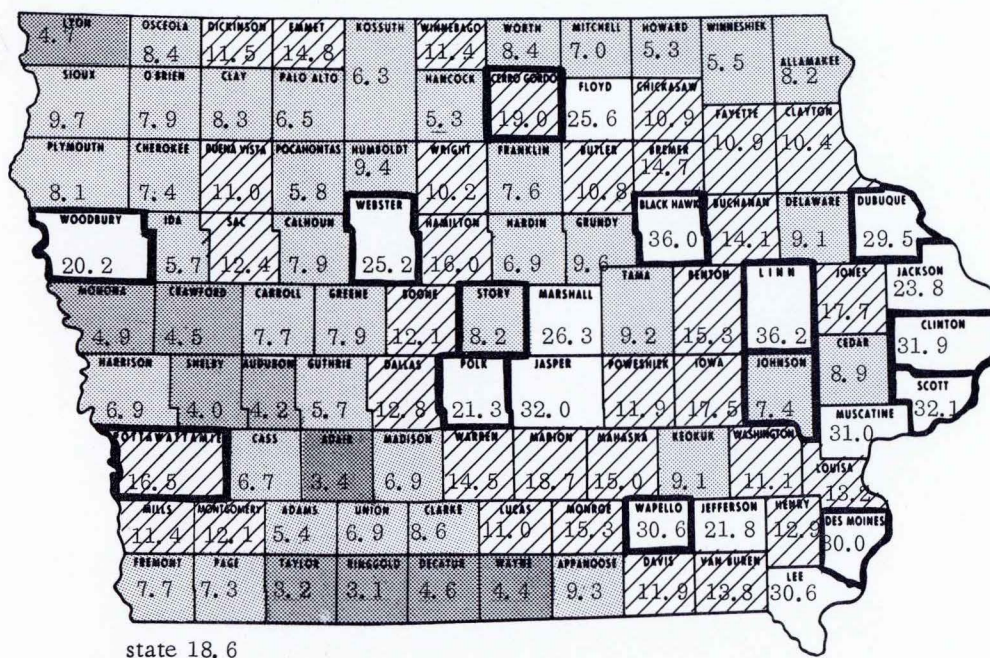 LYON
4.7
OSCEOLA
8.4
DICKINSON
11.5
EMMET
14.8
KOSSUTH
6.3
WINNEBAGO
11.4
WORTH
8.4
MITCHELL
7.0
HOWARD
5.3
WINNESHIEK
5.5
ALLAMAKEE
8.2
SIOUX
9.7
O'BRIEN
7.9
CLAY
8.3
PALO ALTO
6.5
HANCOCK
5.3
CERRO GORDO
19.0
FLOYD
25.6
CHICKASAW
10.9
FAYETTE
10.9
CLAYTON
10.4
PLYMOUTH
8.1
CHEROKEE
7.4
BUENA VISTA
11.0
POCAHONTAS
5.8
HUMBOLDT
9.4
WRIGHT
10.2
FRANKLIN
7.6
BUTLER
10.8
BREMER
14.7
WOODBURY
20.2
IDA
5.7
SAC
12.4
CALHOUN
7.9
WEBSTER
25.2
HAMILTON
16.0
HARDIN
6.9
GRUNDY
9.6
BLACK HAWK
36.0
BUCHANAN
14.1
DELAWARE
9.1
DUBUQUE
29.5
MONONA
4.9
CRAWFORD
4.5
CARROLL
7.7
GREENE
7.9
BOONE
12.1
STORY
8.2
MARSHALL
26.3
TAMA
9.2
BENTON
15.3
LINN
36.2
JONES
17.7
JACKSON
23.8
CLINTON
31.9
CEDAR
8.9
SCOTT
32.1
HARRISON
6.9
SHELBY
4.0
AUDUBON
4.2
GUTHRIE
5.7
DALLAS
12.8
POLK
21.3
JASPER
32.0
POWESHIEK
11.9
IOWA
17.5
JOHNSON
7.4
MUSCATINE
31.0
POTTAWATTAMIE
16.5
CASS
6.7
ADAIR
3.4
MADISON
6.9
WARREN
14.5
MARION
18.7
MAHASKA
15.0
KEOKUK
9.1
WASHINGTON
11.1
LOUISA
13.2
MILLS
11.4
MONTGOMERY
12.1
ADAMS
5.4
UNION
6.9
CLARKE
8.6
LUCAS
11.0
MONROE
15.3
WAPELLO
30.6
JEFFERSON
21.8
HENRY
12.9
DES MOINES
30.0
FREMONT
7.7
PAGE
7.3
TAYLOR
3.2
RINGGOLD
3.1
DECATUR
4.6
WAYNE
4.4
APPANOOSE
9.3
DAVIS
11.9
VAN BUREN
13.8
LEE
30.6
state 18.6